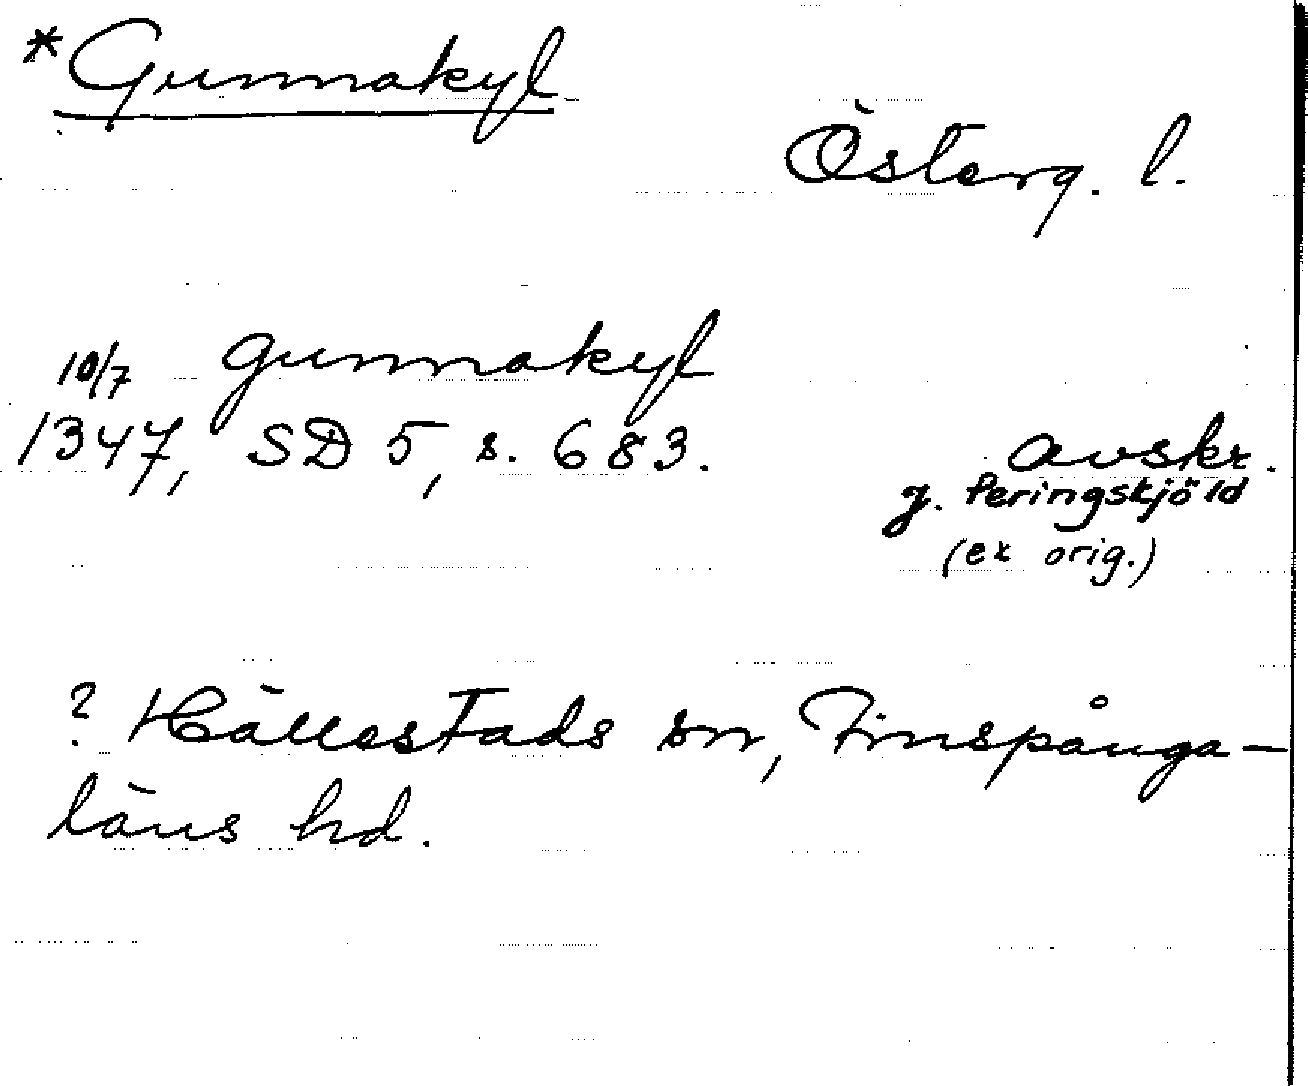 *Gunnakyl
Österg. l.
10/7 gunnakyl
1347, SD 5, s. 683.
avskr.
J. Peringskjöld
(ex orig.)
? Hällestads sn, Finspånga-
läns hd.